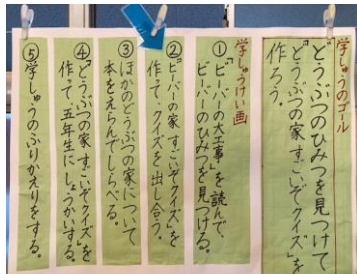 学しゅうのゴール
どうぶつのひみつを見つけて
「どうぶつの家すごいぞクイズ」を
作ろう。
学しゅうけい画
①「ビーバーの大工事」を読んで、
ビーバーのひみつを見つける。
②「ビーバーの家すごいぞクイズ」を
作って、クイズを出し合う。
③ほかのどうぶつの家について
本をえらんでしらべる。
④「どうぶつの家すごいぞクイズ」を
作って、五年生にしょうかいする。
⑤学しゅうのふりかえりをする。